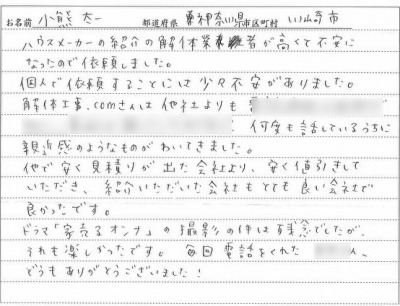 お名前 小熊 太一 都道府県 神奈川県 市区町村 川崎市
ハウスメーカーの紹介の解体業者が高くて不安に
なったので依頼しました。
個人で依頼することには少々不安がありました。
解体工事.comさんは他社よりも
何度も話しているうちに
親近感のようなものがわいてきました。
他で安く見積りが出た会社より、安く値引きして
いただき、紹介いただいた会社もとても良い会社で
良かったです。
ドラマ「家売るオンナ」の撮影の件は残念でしたが、
それも楽しかったです。毎回電話をくれた ん、
どうもありがとうございました!